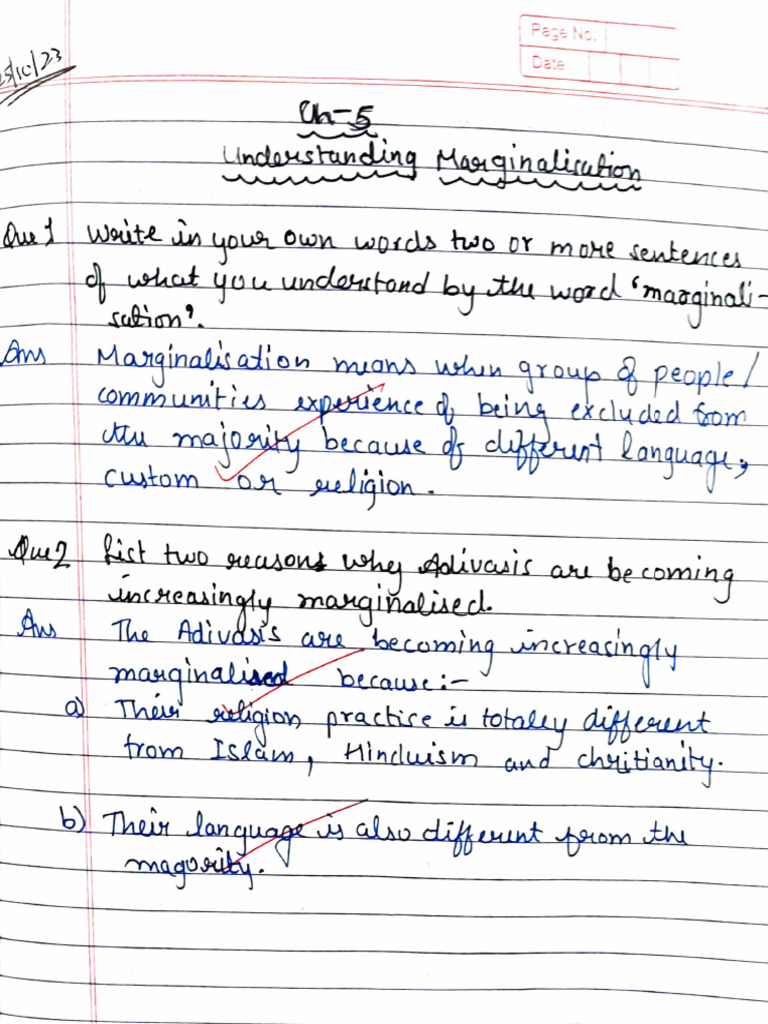 Page No.
Date
25/10/23
Ch-5
Understanding Marginalisation
Que 1 Write in your own words two or more sentences
of what you understand by the word 'marginali-
sation'.
Ans Marginalisation means when group of people/
communities experience of being excluded from
the majority because of different language,
custom or religion.
Que 2 List two reasons why Adivasis are becoming
increasingly marginalised.
Ans The Adivasis are becoming increasingly
marginalised because:-
a) Their religion practice is totaley different
from Islam, Hinduism and chritianity.
b) Their language is also different from the
magority.